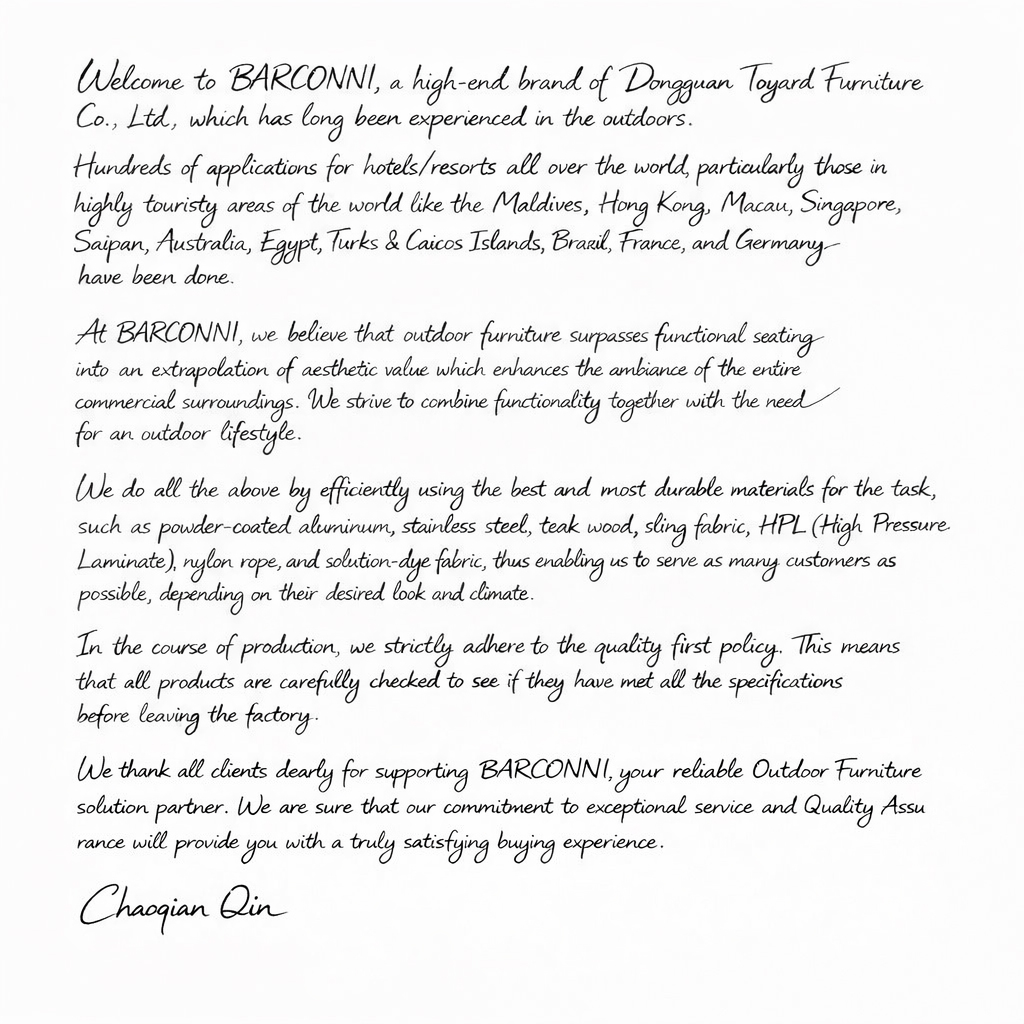 Welcome to BARCONNI, a high-end brand of Dongguan Toyard Furniture
Co., Ltd, which has long been experienced in the outdoors.
Hundreds of applications for hotels/resorts all over the world, particularly those in
highly touristy areas of the world like the Maldives, Hong Kong, Macau, Singapore,
Saipan, Australia, Egypt, Turks & Caicos Islands, Brazil, France, and Germany
have been done.
At BARCONNI, we believe that outdoor furniture surpasses functional seating
into an extrapolation of aesthetic value which enhances the ambiance of the entire
commercial surroundings. We strive to combine functionality together with the need
for an outdoor lifestyle.
We do all the above by efficiently using the best and most durable materials for the task,
such as powder-coated aluminum, stainless steel, teak wood, sling fabric, HPL (High Pressure
Laminate), nylon rope, and solution-dye fabric, thus enabling us to serve as many customers as
possible, depending on their desired look and climate.
In the course of production, we strictly adhere to the quality first policy. This means
that all products are carefully checked to see if they have met all the specifications
before leaving the factory.
We thank all clients dearly for supporting BARCONNI, your reliable Outdoor Furniture
solution partner. We are sure that our commitment to exceptional service and Quality Assu
rance will provide you with a truly satisfying buying experience.
Chaoqian Qin